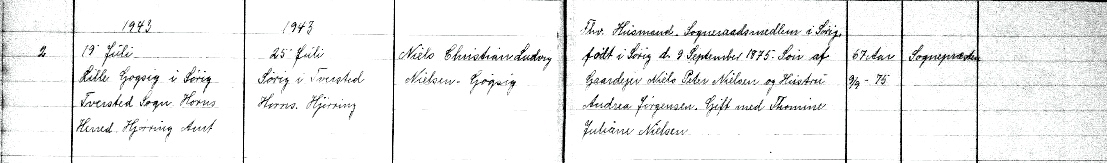 1943
2
19 Juli
Lille Gøgsig i Sørig
Tversted Sogn. Horns
Herred. Hjørring Amt
1943
25 Juli
Sørig i Tversted
Horns. Hjørring
Niels Christian Ludvig
Nielsen-Gøgsig
Thv. Husmand. Sogneraadsmedlem i Sørig,
født i Sørig d. 9 September 1875. Søn af
Gaardejer Niels Peter Nielsen og Hustru
Andrea Jørgensen. Gift med Thomine
Juliane Nielsen
67 Aar
9/9-75
Sognepræsten